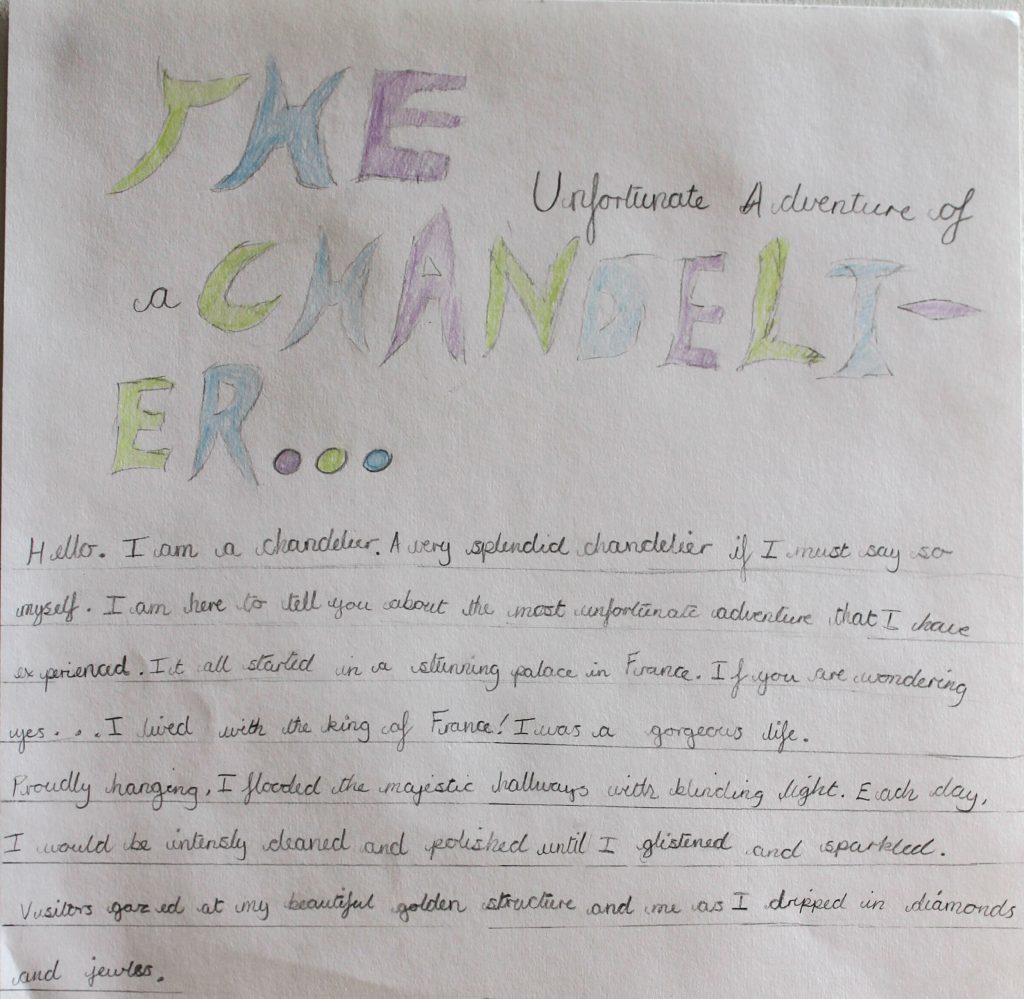 THE
Unfortunate Adventure of
a CHANDELI-
ER...
Hello. I am a chandelier. A very splendid chandelier if I must say so
myself. I am here to tell you about the most unfortunate adventure that I have
experienced. It all started in a stunning palace in France. If you are wondering
yes... I lived with the king of France! I was a gorgeous life.
Proudly hanging, I flooded the majestic hallways with blinding light. Each day,
I would be intensly cleaned and polished until I glistened and sparkled.
Visitors gazed at my beautiful golden structure and me as I dripped in diamonds
and jewles.